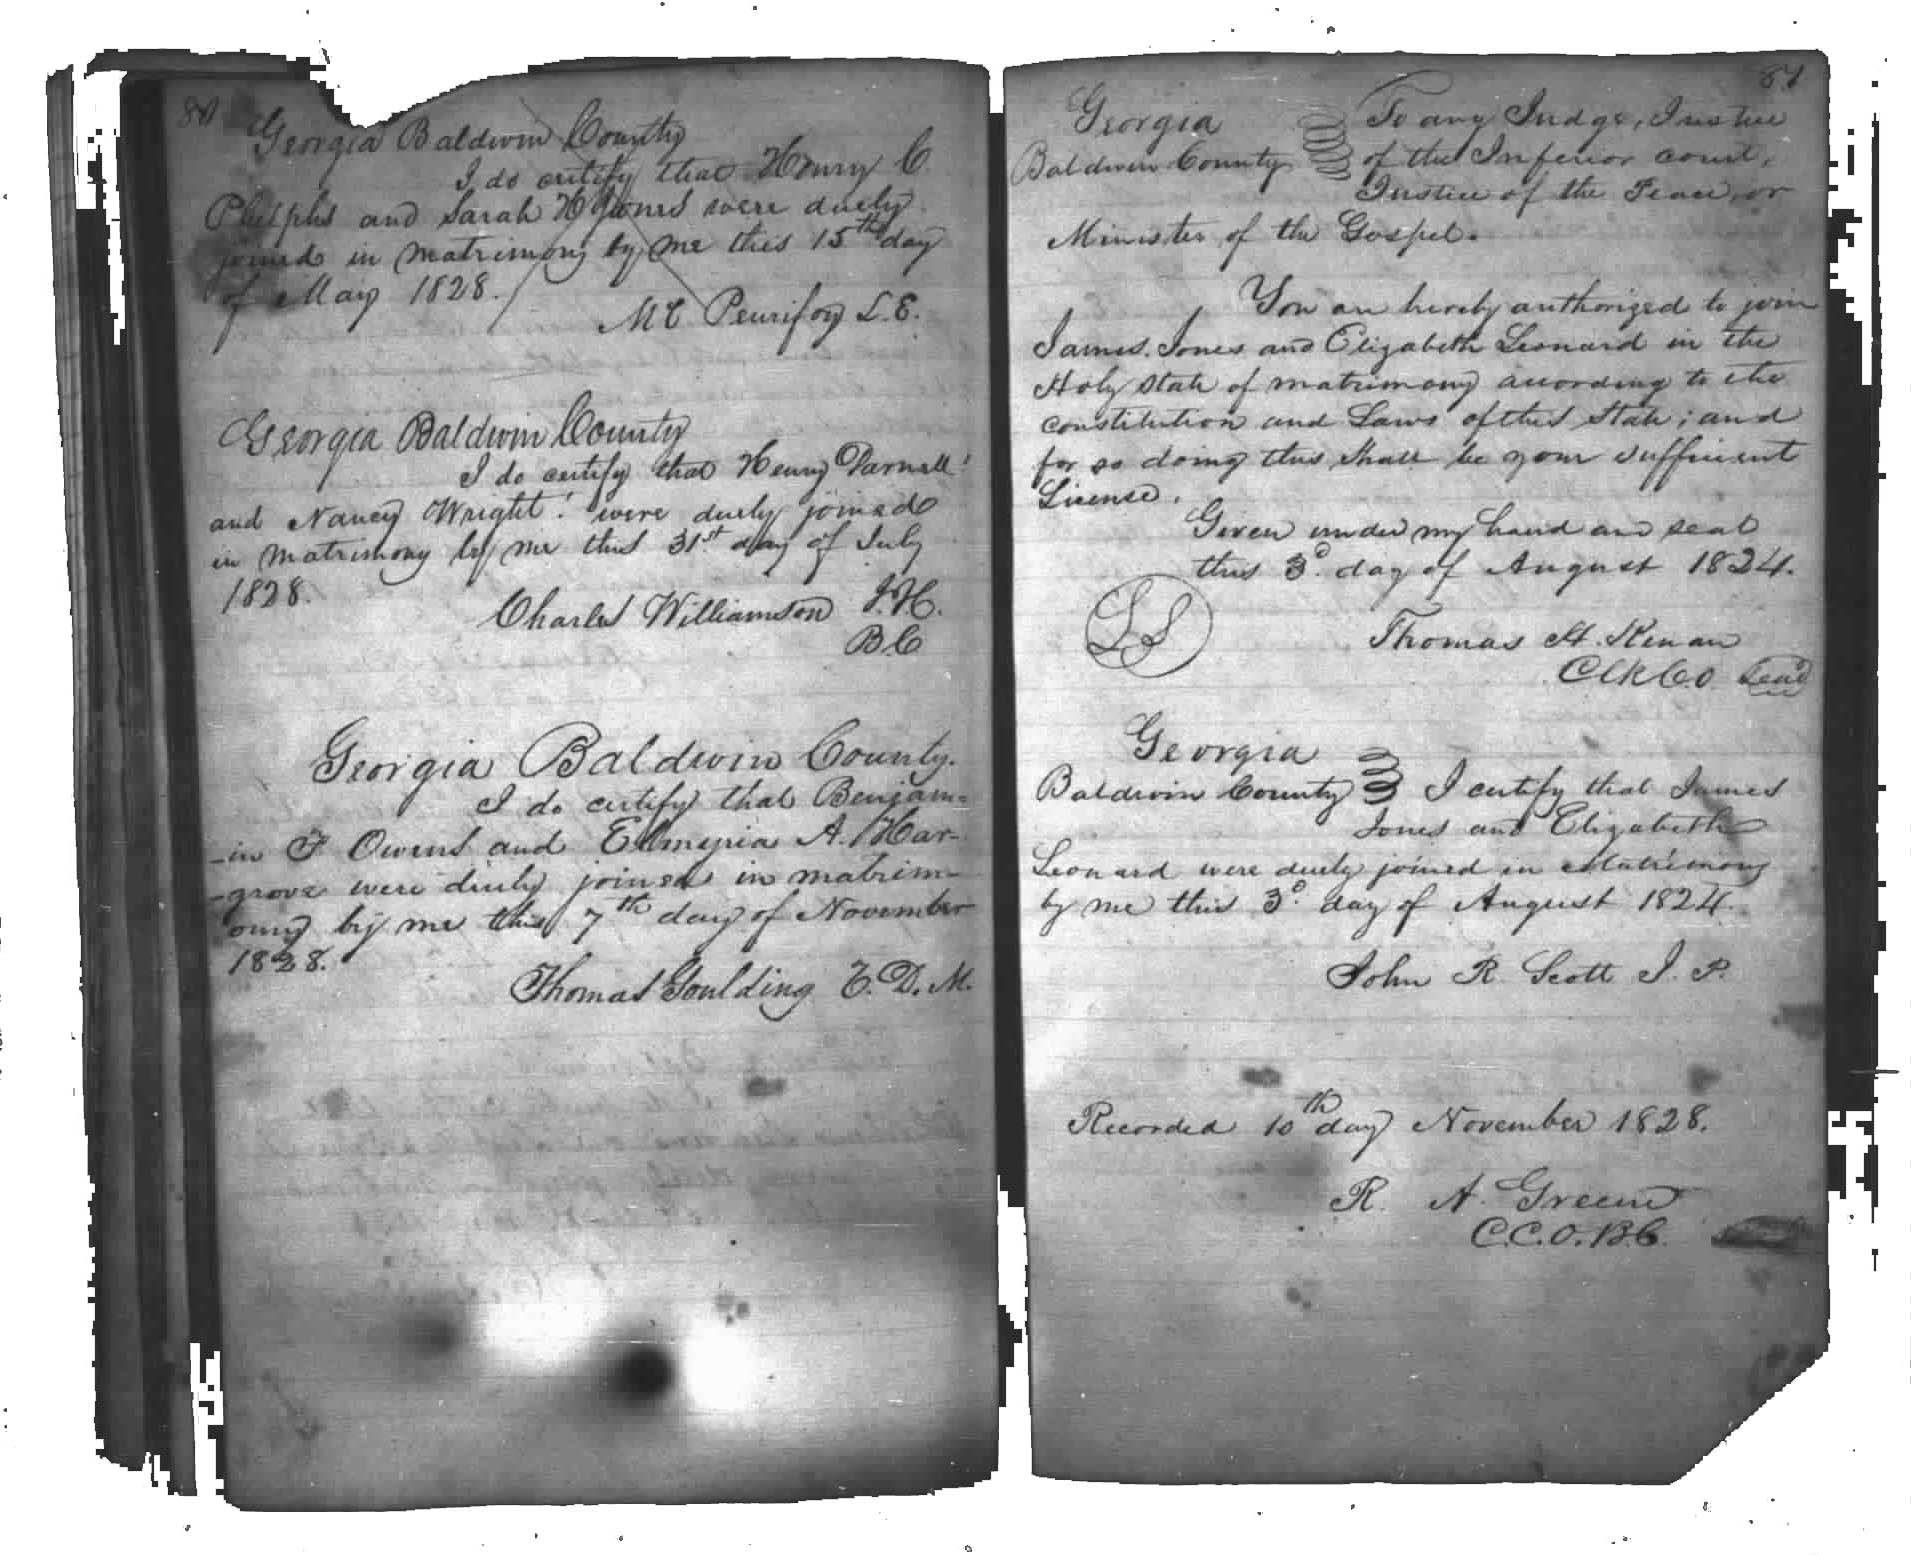 80
Georgia Baldwin County
I do certify that Henry C.
Phelphs and Sarah H Jones were duely
joined in matrimony by me this 15th day
of May 1828.
Mc Peurifoy L. E.
Georgia Baldwin County
I do certify that Henry Darnell
and Nancy Wright were duely joined
in matrimony by me this 31st day of July
1828.
Charles Williamson J. I. C.
B C
Georgia Baldwin County.
I do certify that Benjam=
-in F Owens and Elmyria A. Har-
-grove were duely joined in matrim-
ony by me this 7th day of November
1828.
Thomas Goulding V. D. M.
81
Georgia
To any Judge, Justice
Baldwin County
of the Inferior court,
Justice of the Peace, or
Minister of the Gospel.
You are hereby authorized to join
James Jones and Elizabeth Leonard in the
Holy state of matrimony according to the
constitution and Laws of this State; and
for so doing this shall be your sufficient
License.
Given under my hand and seal
this 3d. day of August 1824.
LS
Thomas H. Kenan
Clk C. O Seal
Georgia
Baldwin County I certify that James
Jones and Elizabeth
Leonard were duely joined in Matrimony
by me this 3d. day of August 1824.
John R. Scott J. P.
Recorded 10th day November 1828.
R. A. Greene
C. C. O. B. C.